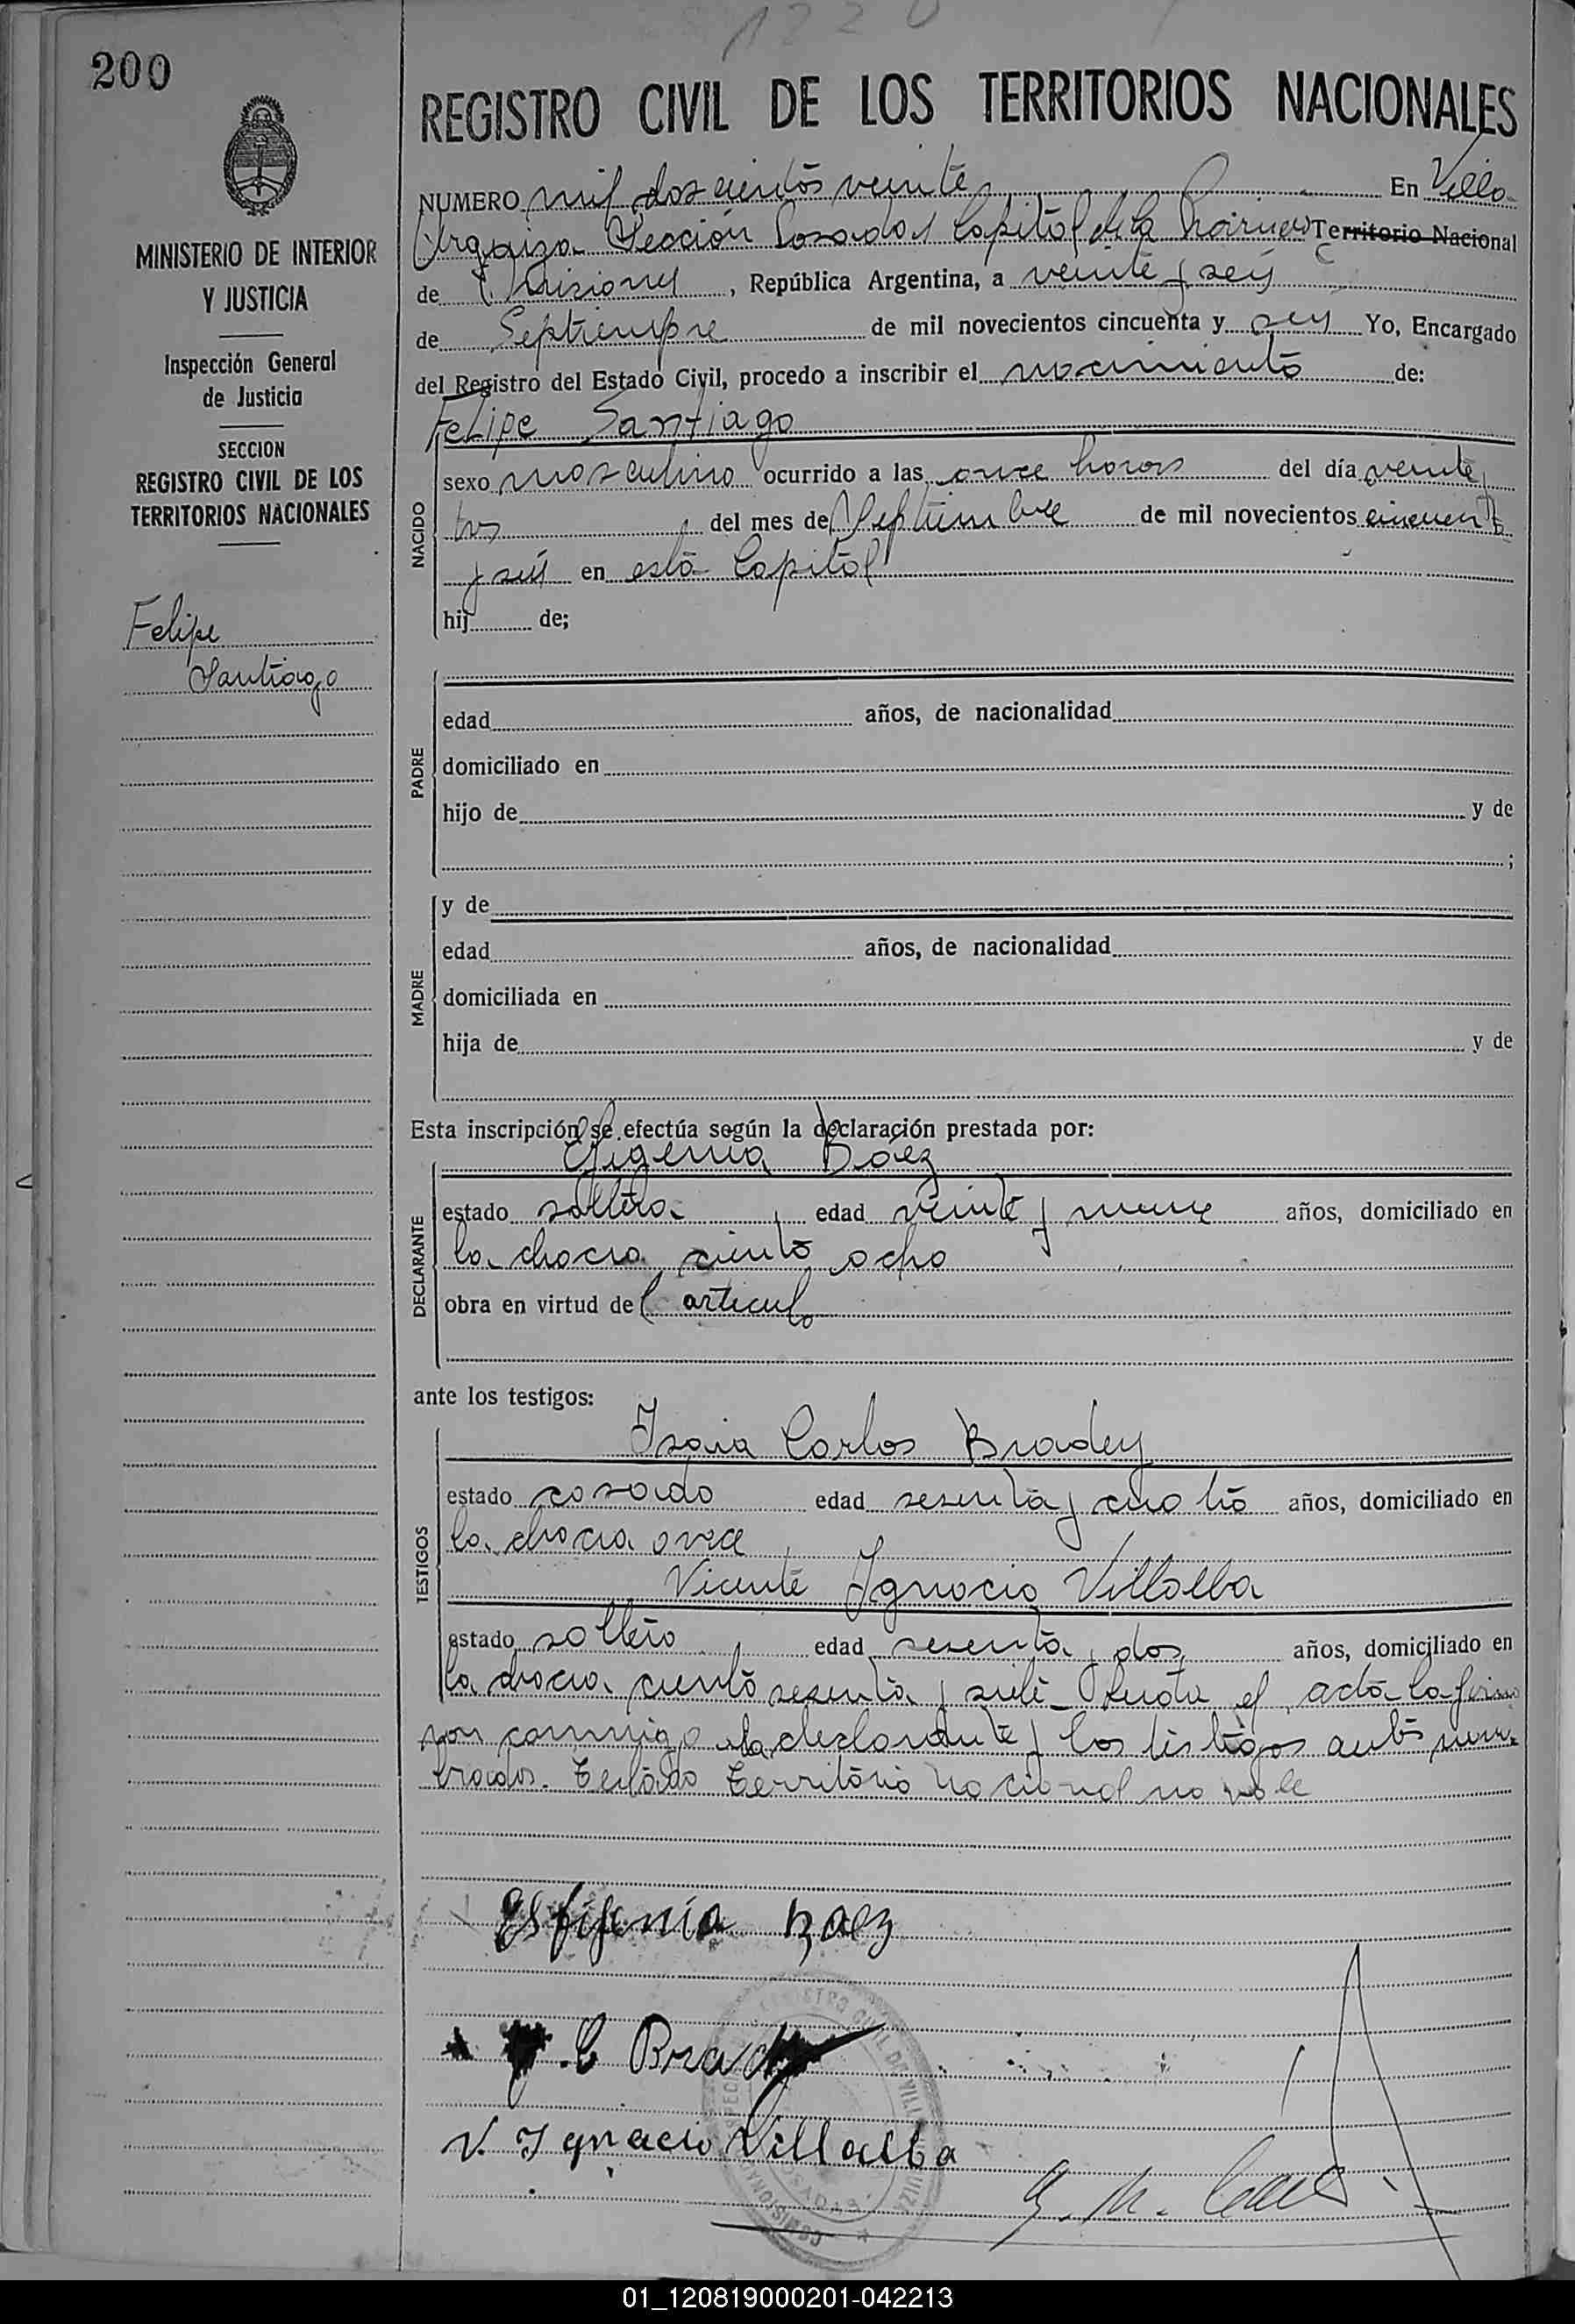 1220
200
REGISTRO CIVIL DE LOS TERRITORIOS NACIONALES
MINISTERIO DE INTERIOR
Y JUSTICIA
Inspección General
de Justicia
SECCION
REGISTRO CIVIL DE LOS
TERRITORIOS NACIONALES
Felipe
Santiago
NUMERO mil doscientos veinte En Villa
Urquiza Sección Posadas Capital de la Provincia Territorio Nacional
de Misiones, República Argentina, a veinte y seis
de Septiembre de mil novecientos cincuenta y seis Yo, Encargado
del Registro del Estado Civil, procedo a inscribir el nacimiento de:
Felipe Santiago
NACIDO
sexo masculino ocurrido a las once horas del día veinte y
tres del mes de Septiembre de mil novecientos cincuenta
y seis en esta Capital
hij de;
PADRE
edad años, de nacionalidad
domiciliado en
hijo de y de
;
MADRE
y de
edad años, de nacionalidad
domiciliada en
hija de y de
Esta inscripción se efectúa según la declaración prestada por:
Efigenia Báez
DECLARANTE
estado soltera edad veinte y nueve años, domiciliado en
la chacra ciento ocho
obra en virtud del articulo
ante los testigos:
TESTIGOS
Isaia Carlos Bradey
estado casado edad sesenta y cuatro años, domiciliado en
la chacra once
Vicente Ignacio Villalba
estado soltero edad sesenta y dos años, domiciliado en
la chacra ciento sesenta y siete - el acta la firma
con conmigo la declarante y los testigos antes nom-
brados. Testado Territorio Nacional no vale
Esfigenia Baez
C Brady
V. Ignacio Villalba
REGISTRO CIVIL DE VILLA
POSADAS
01_120819000201-042213